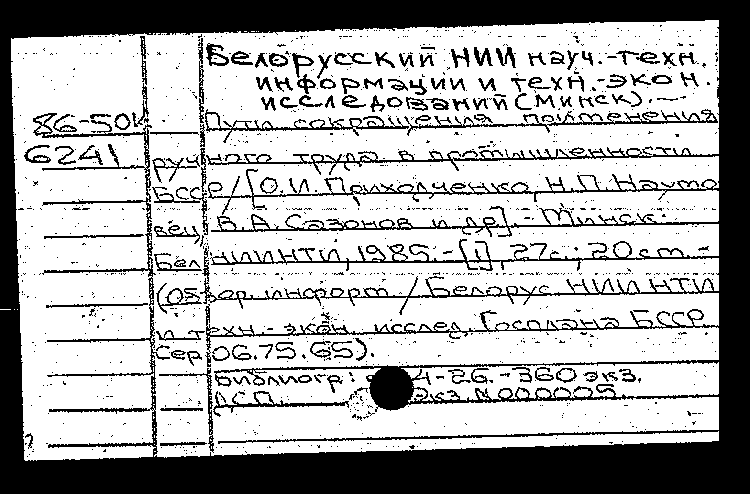 Белорусский НИИ науч.-техн.
информации и техн.-экон.
исследований (Минск). —
86-50к
Пути сокращения применения
6241
ручного труда в промышленности
БССР / [О.И. Приходченко, Н.П. Науто
вец, В.А. Сазонов и др]. - Минск:
БелНИИНТИ, 1985. - [1], 27с.; 20 cm. -
(Обзор. информ. / Белорус. НИИ НТИ
и техн.-экон. исслед. Госплана БССР
Сер 06.75.65).
Библиогр.: 4-26. - 360 экз.
ДСП. Экз. N000005.